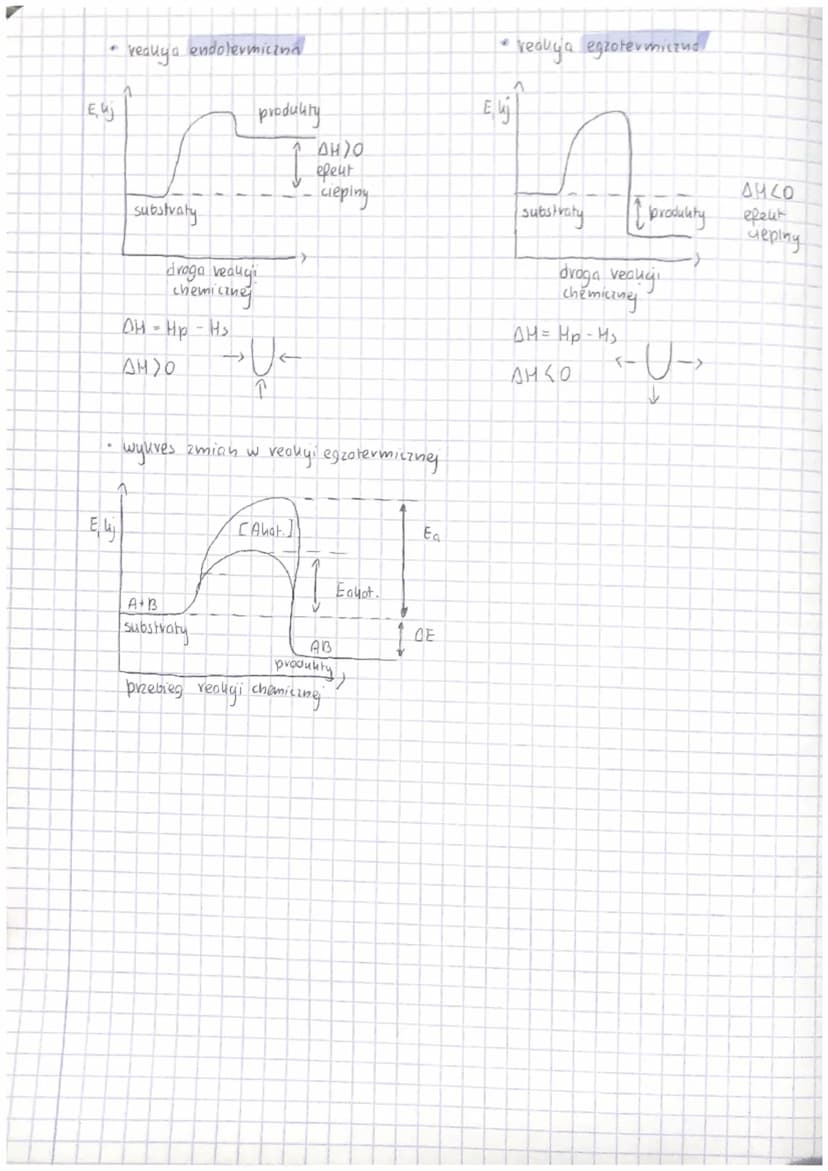 • reakcja endotermiczna
E, kJ
produkty
ΔH>0
efekt
cieplny
substraty
droga reakcji
chemicznej
ΔH = Hp - Hs
ΔH>0
• reakcja egzotermiczna
E, kJ
substraty
produkty
ΔH<0
efekt
cieplny
droga reakcji
chemicznej
ΔH = Hp - Hs
ΔH<0
• wykres zmian w reakcji egzotermicznej
E, kJ
[Akat.]
Ea
Eakat.
A+B
substraty
ΔE
AB
produkty
przebieg reakcji chemicznej